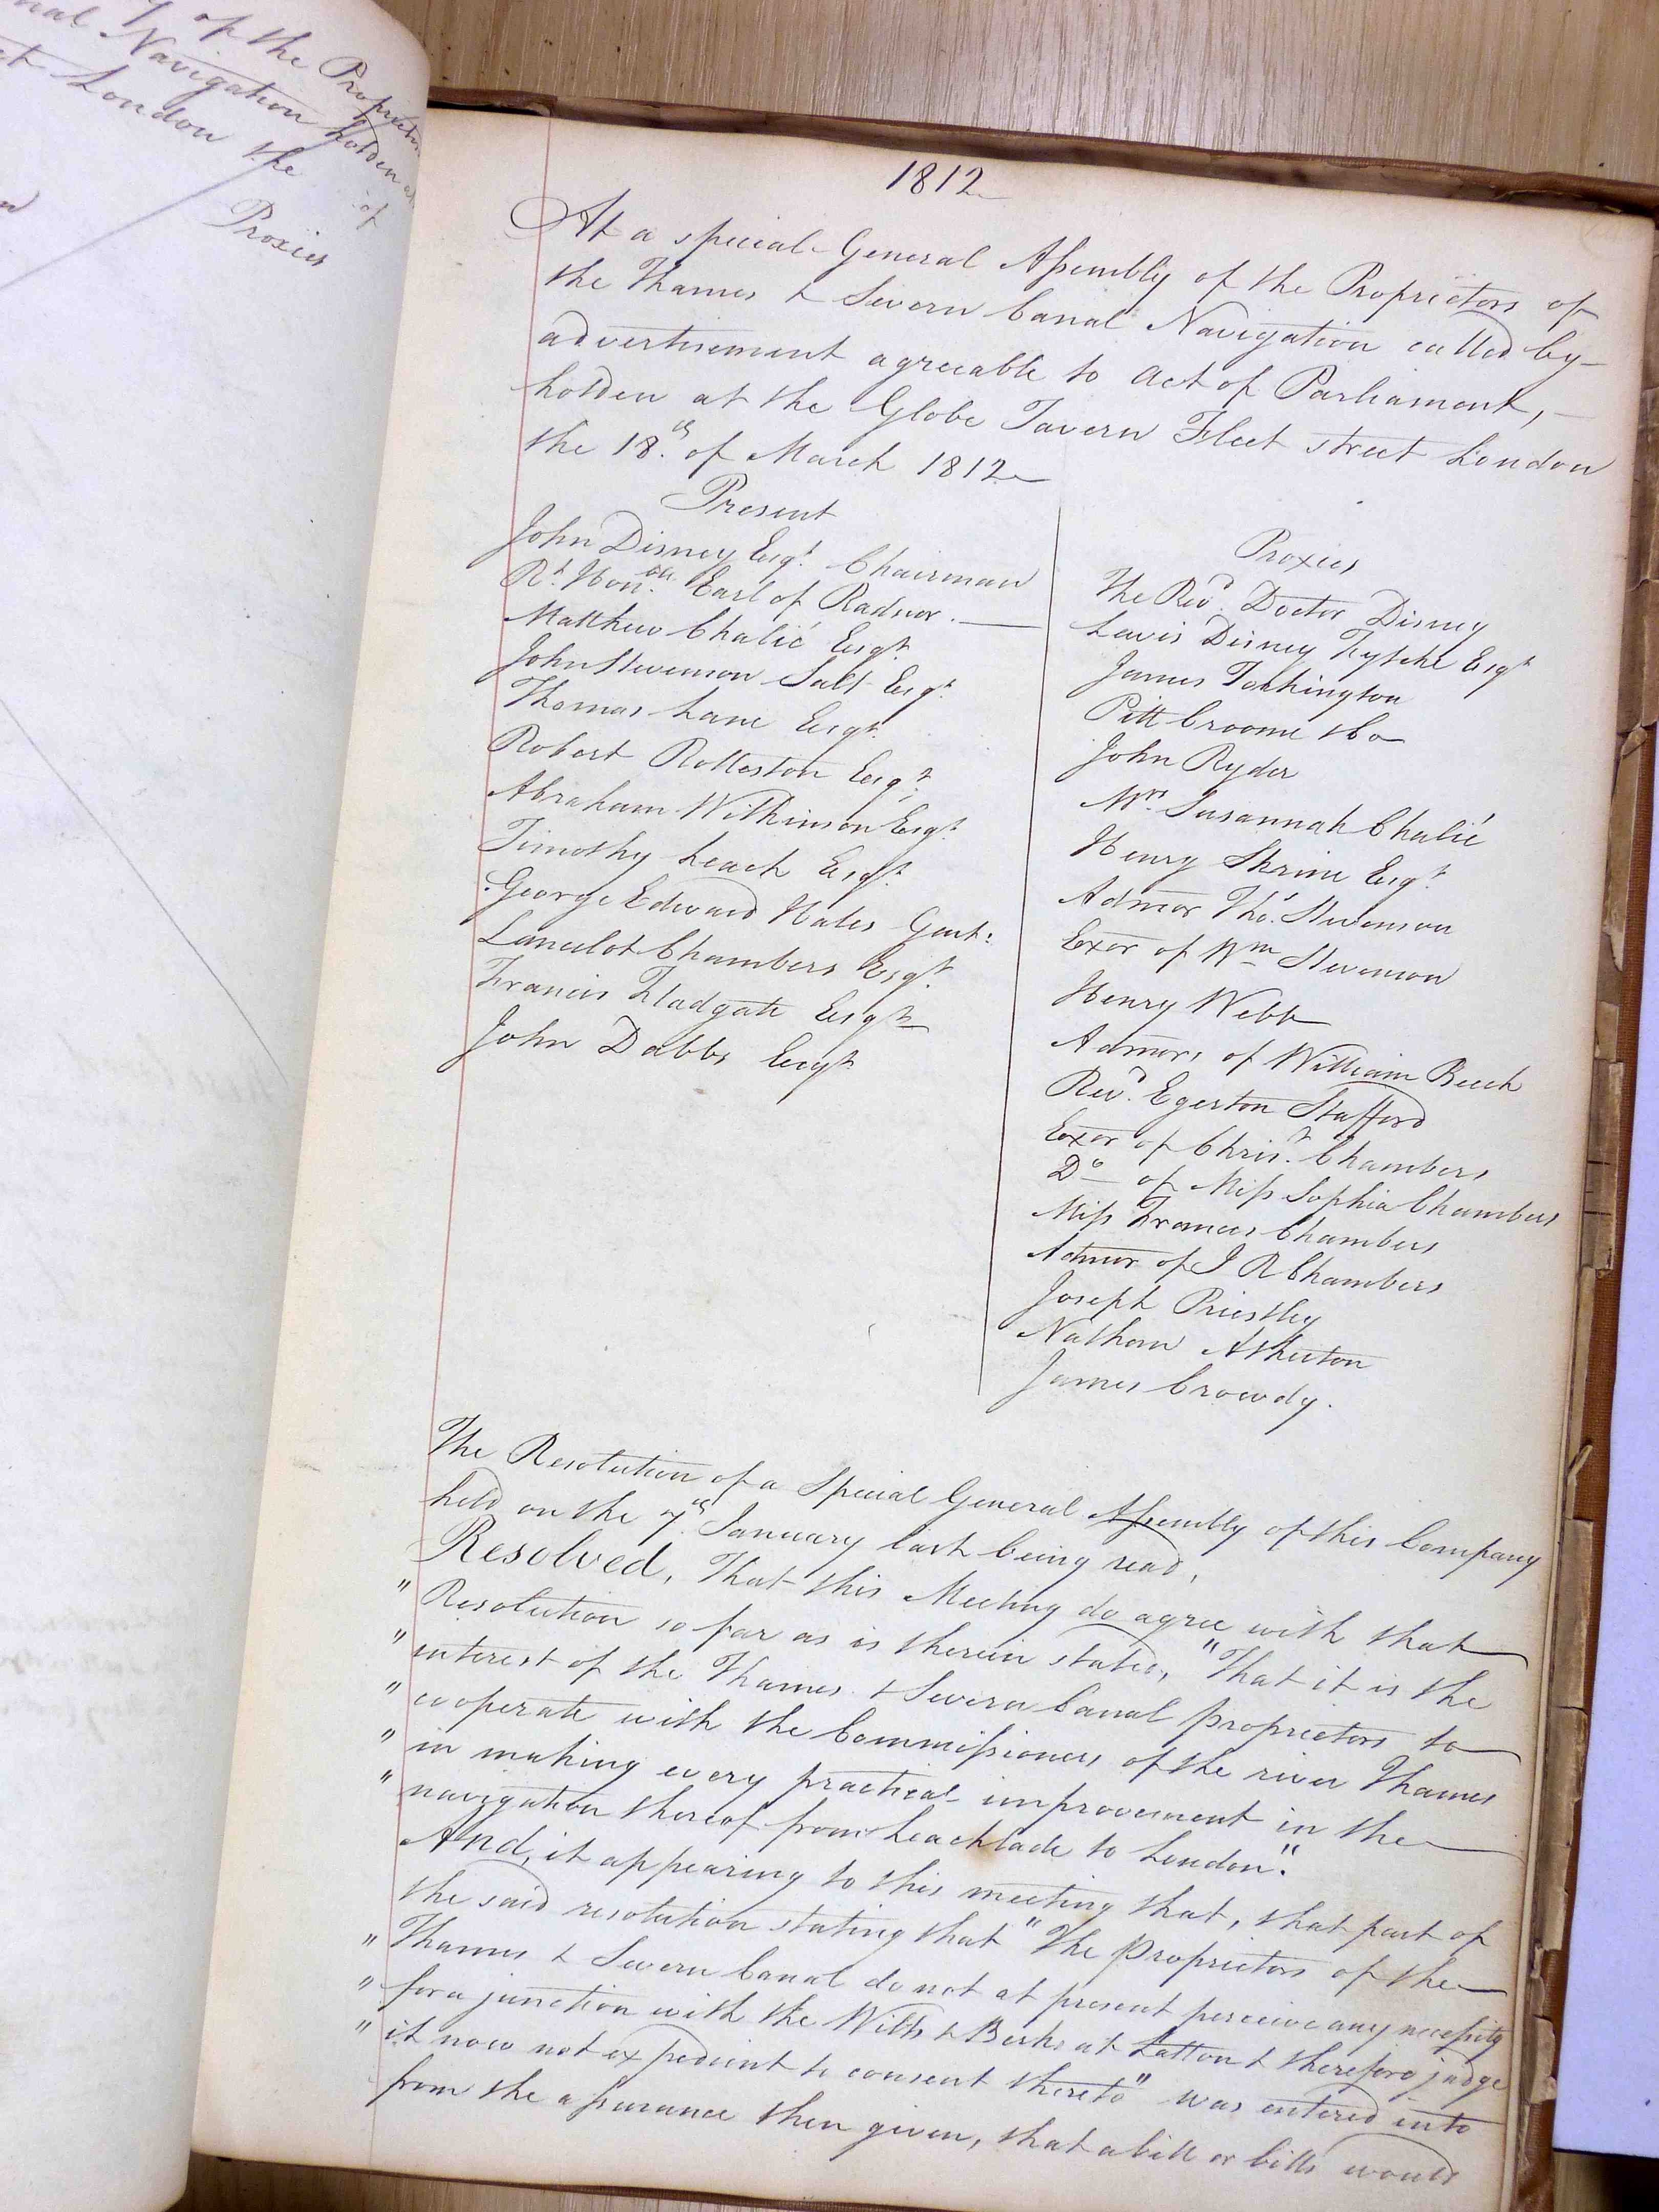 of the Proprietors
Navigation holden at
at London the of
Proxies
1812
At a special General Assembly of the Proprietors of
the Thames & Severn Canal Navigation called by
advertisement agreeable to Act of Parliament,
holden at the Globe Tavern Fleet street London
the 18th. of March 1812
Present
John Disney Esqr. Chairman
Rt. Honble. Earl of Radnor.
Matthew Chalié Esqr.
John Stevenson Salt Esqr.
Thomas Lane Esqr.
Robert Rolleston Esqr.
Abraham Wilkinson Esqr.
Timothy Leach Esqr.
George Edward Hales Gent:
Lancelot Chambers Esqr.
Francis Fladgate Esqr
John Dabbs Esqr
Proxies
The Revd. Doctor Disney
Lewis Disney Fytche Esqr
James Torkington
Pitt Croome &Co
John Ryder
Mrs. Susannah Chalié
Henry Shrine Esqr.
Admor Thos. Stevenson
Exor of Wm Stevenson
Henry Webb
Admors of William Beech
Revd. Egerton Stafford
Exor of Chrisr. Chambers
Do of Miss Sophia Chambers
Miss Frances Chambers
Admor of J R Chambers
Joseph Priestley
Nathan Atherton
James Crowdy.
The Resolution of a Special General Assembly of this Company
held on the 7th. January last being read,
Resolved, That this Meeting do agree with that
" Resolution so far as is therein stated, "That it is the
" interest of the Thames & Severn Canal proprietors to
" cooperate with the Commissioners of the river Thames
" in making every practical improvement in the
" navigation thereof from Leachlade to London".
And, it appearing to this meeting that, that part of
the said resolution stating that "The Proprietors of the
" Thames & Severn Canal do not at present perceive any necessity
" for a junction with the Wilts & Berks at Latton & therefore judge
" it now not expedient to consent thereto" was entered into
from the assurance then given, that a bill or bills would